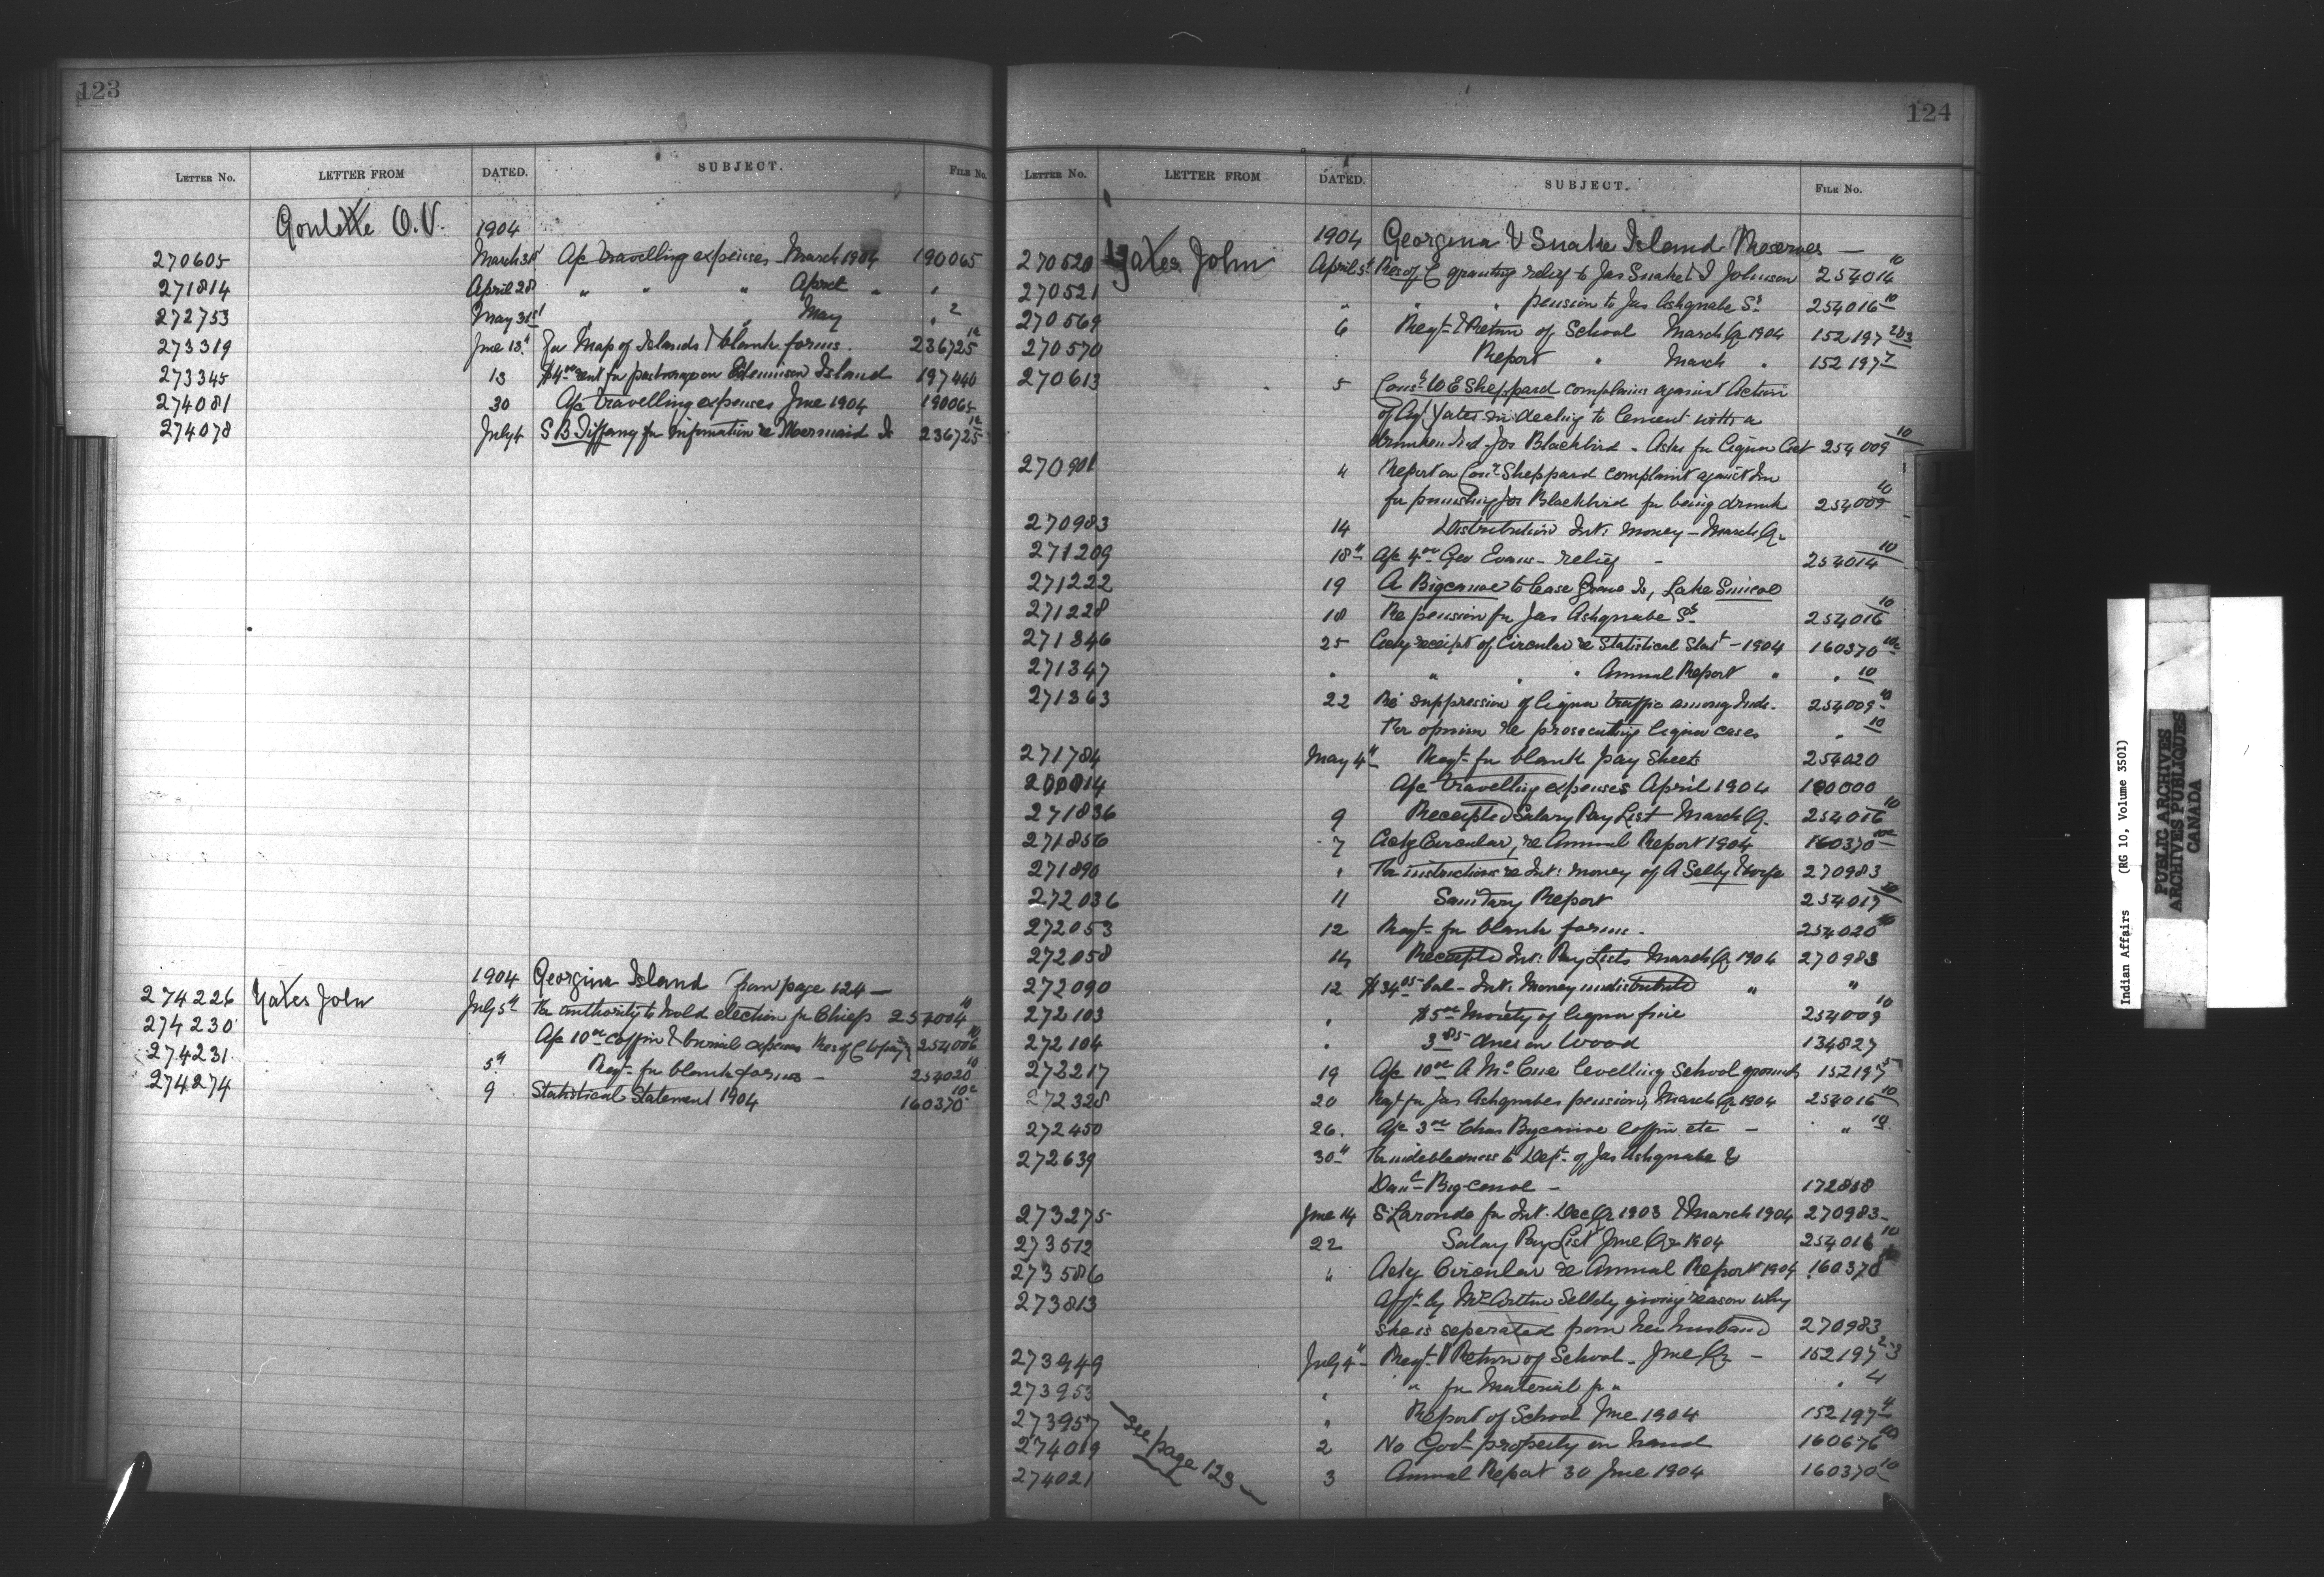 123
LETTER NO. LETTER FROM DATED. SUBJECT. FILE NO.
Goulette O.V. 1904
270605 March 31st A/c travelling expenses March 1904 190065
271814 April 28 " " " April " "
272753 May 31st " May " 2
273319 June 13th For Map of Islands & blank forms. 236725 12
273345 13 Island 197440
274081 30 A/c travelling expenses June 1904 190065
274078 July 4 S B Tiffany for information re Mermaid Is 236725 12
1904 Georgina Island from page 124 —
274226 Yates John July 5th For authority to hold election for Chiefs 254004 10
274230 A/c 10.00 coffin & burial expenses Res of C 254006 10
274231 5th Reqt. for blank forms — 254020 10
274274 9 Statistical Statement 1904 160370 10c
124
LETTER NO. LETTER FROM DATED. SUBJECT. FILE NO.
1904 Georgina & Snake Island Reserves —
270520 Yates John April 5th Res of C granting relief to Jas Snake & J Johnson 254014 10
270521 " " " pension to Jas Ashquabe Sr. 254016 10
270569 6 Reqt. & Return of School March Qr 1904 152197 2&3
270570 Report " March " 152197
270613 5 Const. W E Sheppard complains against action
of Agt Yates in dealing to Cement with a
drunken Ind. Jos Blackbird - Asks for Liquor Act 254009 10
270901 " Report on Const. Sheppard complaint against him
for punishing Jos Blackbird for being drunk 254009 10
270983 14 Distribution Int: Money — March Qr
271209 18th A/c 4.00 Geo Evans - relief - 254014 10
271222 19 A Bigcanoe to lease Is, Lake Simcoe
271228 18 Re pension for Jas Ashquabe Sr. 254016 10
271346 25 Ackg receipt of Circular re Statistical Stat - 1904 160370 10c
271347 " " " " Annual Report " " 10
271363 22 Re suppression of liquor traffic among Inds. 254009 10
For opinion re prosecuting liquor cases " 10
271784 May 4th Reqt. for blank pay sheets 254020
A/c travelling expenses April 1904
271836 9 Receipted Salary Pay List March Qr. 254016 10
271856 7 Ackg Circular, re Annual Report 1904 160370 10c
271890 " For instructions re Int: money of A Selby & wife 270983
272036 11 Sanitary Report 254017
272053 12 Reqt. for blank forms. 254020 10
272058 14 Receipted Int: Pay Lists March Qr 1904 270983
272090 12 $34.05 bal - Int: Money undistributed " "
272103 " $5.00 Moiety of liquor fine 254009 10
272104 " 3.85 dues on Wood 134827
272217 19 A/c 10.00 A McCue levelling School grounds 152197 5
272328 20 Reqt for Jas Ashquabes pension, March Qr 1904 254016 10
272450 26. A/c 3.00 Chas Bigcanoe coffin etc — " 10
272639 30th For indebtedness to Dept. of Jas Ashquabe &
Bigcanoe - 172868
273275 June 14 S. Laronde for Int. Dec Qr 1903 & March 1904 270983
273512 22 Salary Pay List June Qr 1904 254016 10
273586 " Ackg Circular re Annual Report 1904 160370
273813 Afft. by Mrs Arthur Selby giving reason why
she is seperated from her husband 270983
273949 July 4th Reqt. & Return of School - June Qr — 152197 2-3
273953 " " for Material for " " 4
273957 " Report of School June 1904 152197 4
274019 2 No Govt property on hand 160676 10
274021 3 Annual Report 30 June 1904 160370 10
See page 123
Indian Affairs (RG 10, Volume 3501)
PUBLIC ARCHIVES
ARCHIVES PUBLIQUES
CANADA